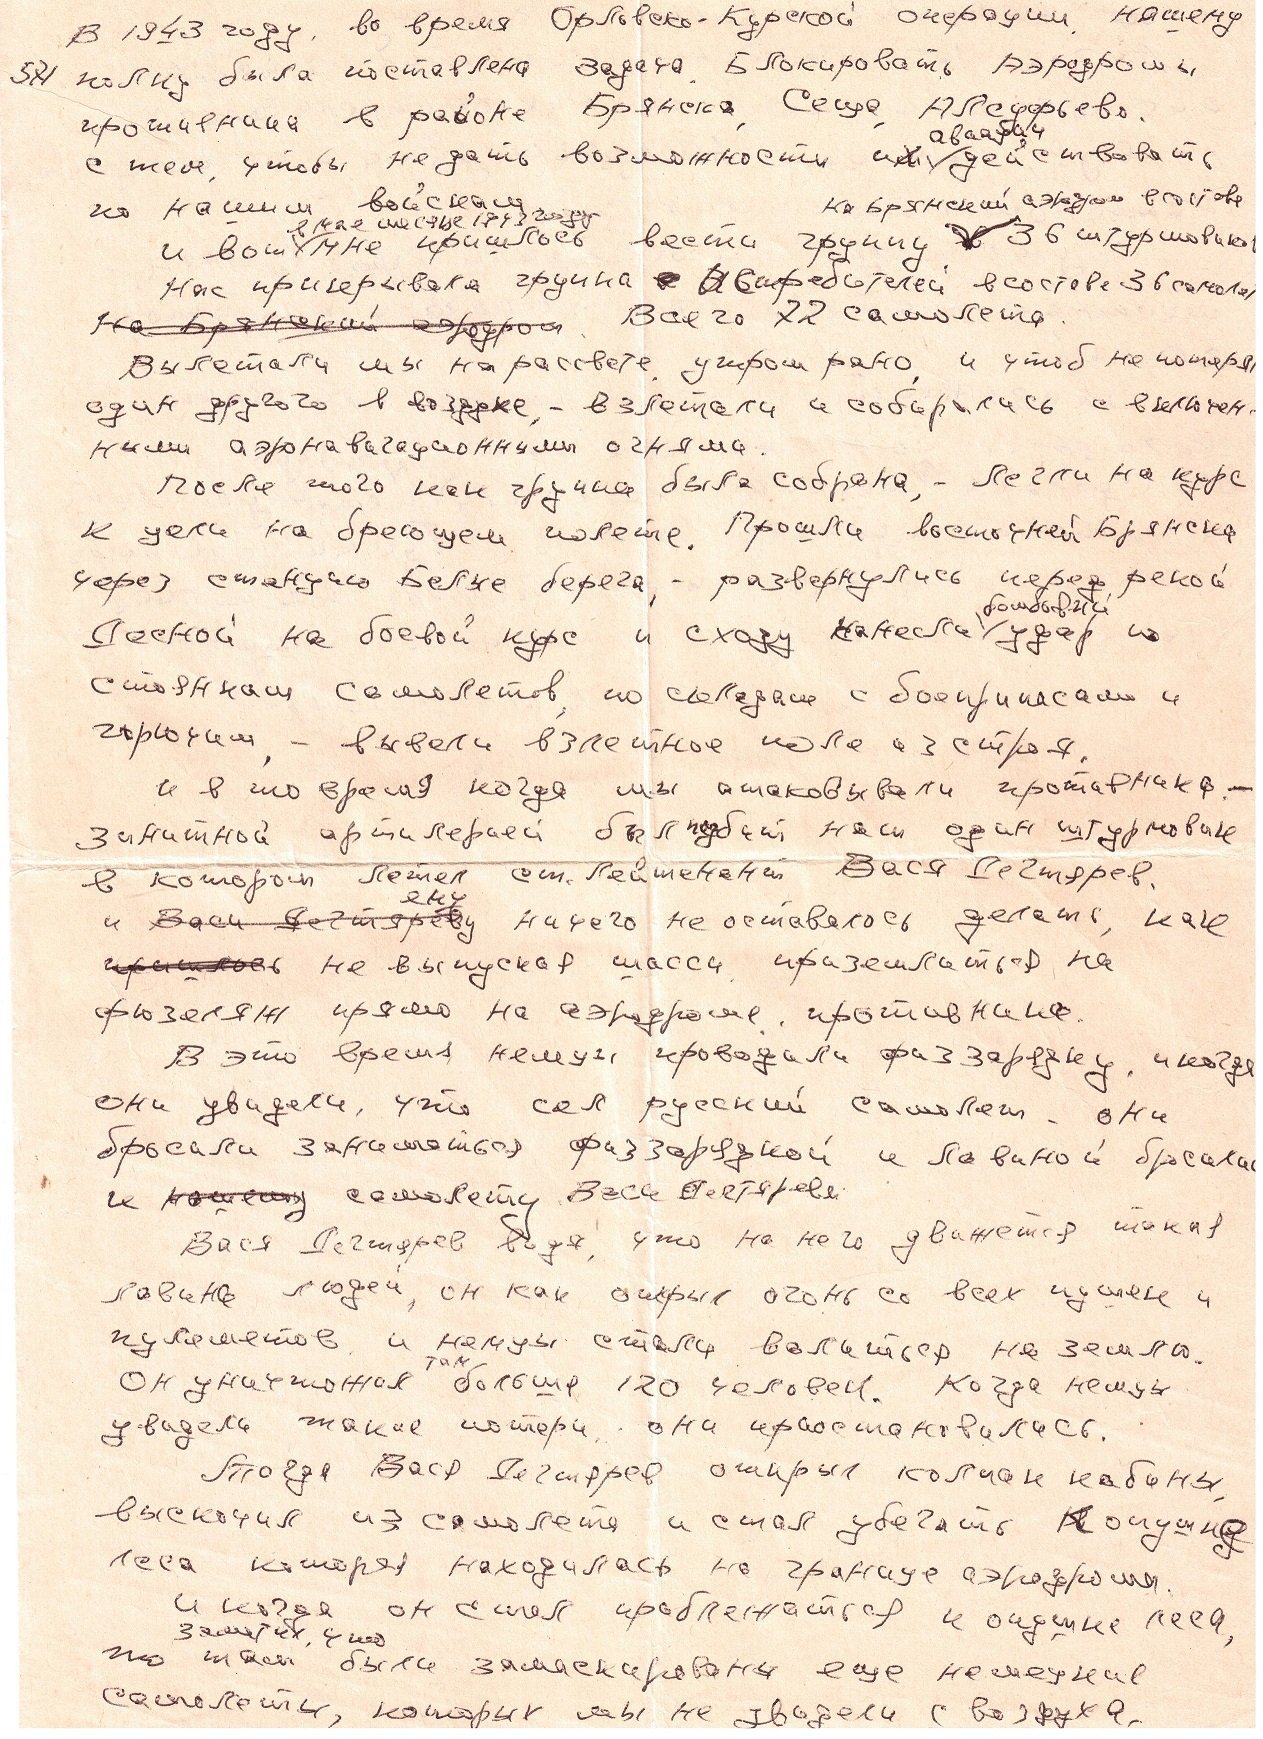 В 1943 году, во время Орловско-Курской операции, нашему
571 полку была поставлена задача, Блокировать Аэродромы
противника в районе Брянска, Сеща, Олсуфьево.
авиации
с тем, чтобы не дать возможности им действовать
по нашим войскам
на Брянский аэродром в составе
в мае месяце 1943 году
и вот мне пришлось вести группу 36 штурмовиков
Нас прикрывала группа Истребителей в составе 36 самолет
На Брянский аэродром. Всего 72 самолета.
Вылетали мы на рассвете, утром рано, и чтоб не потерят
один другого в воздухе, - взлетали и собирались с включен-
ными аэронавигационными огнями.
После того как группа была собрана, - легли на курс
к цели на бреющем полете. Прошли восточней Брянска
через станцию Белые берега, - развернулись перед рекой
бомбовый
Десной на боевой курс и сходу нанесли удар по
стоянкам самолетов, по складам с боеприпасами и
горючим, - вывели взлетное поле из строя.
и в то время когда мы атаковывали противника -
зинитной артилерией был подбит наш один штурмовик
в котором летел ст. Лейтенант Вася Дегтярев.
ему
и Васи Дегтяреву ничего не оставалось делать, как
пришлось не выпуская шасси, приземлиться на
фюзеляж прямо на аэродроме, противника.
В это время немцы проводили физзарядку, и когда
они увидели, что сел русский самолет - они
бросили заниматься физзарядкой и лавиной бросились
к нашему самолету Васи Дегтярева
Вася Дегтярев видя, что на него движется такая
лавина людей, он как открыл огонь со всех пушек и
пулеметов и немцы стали валиться на землю.
там
Он уничтожил больше 120 человек. Когда немцы
увидели такие потери, они приостановились.
Тогда Вася Дегтярев открыл колпак кабины,
выскочил из самолета и стал убегать К опушке
леса которая находилась на границе аэродрома.
И когда он стал приближаться к опушке леса,
заметил, что
то там были замаскированы еще немецкие
самолеты, которых мы не увидели с воздуха.